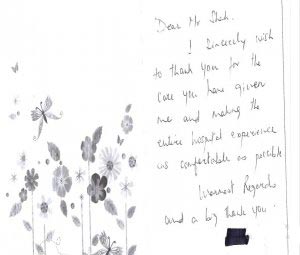 Dear Mr Shah.
I Sincerely wish
to thank you for the
care you have given
me and making the
entire hospital experience
as comfortable as possible
Warmest Regards
and a big thank you.